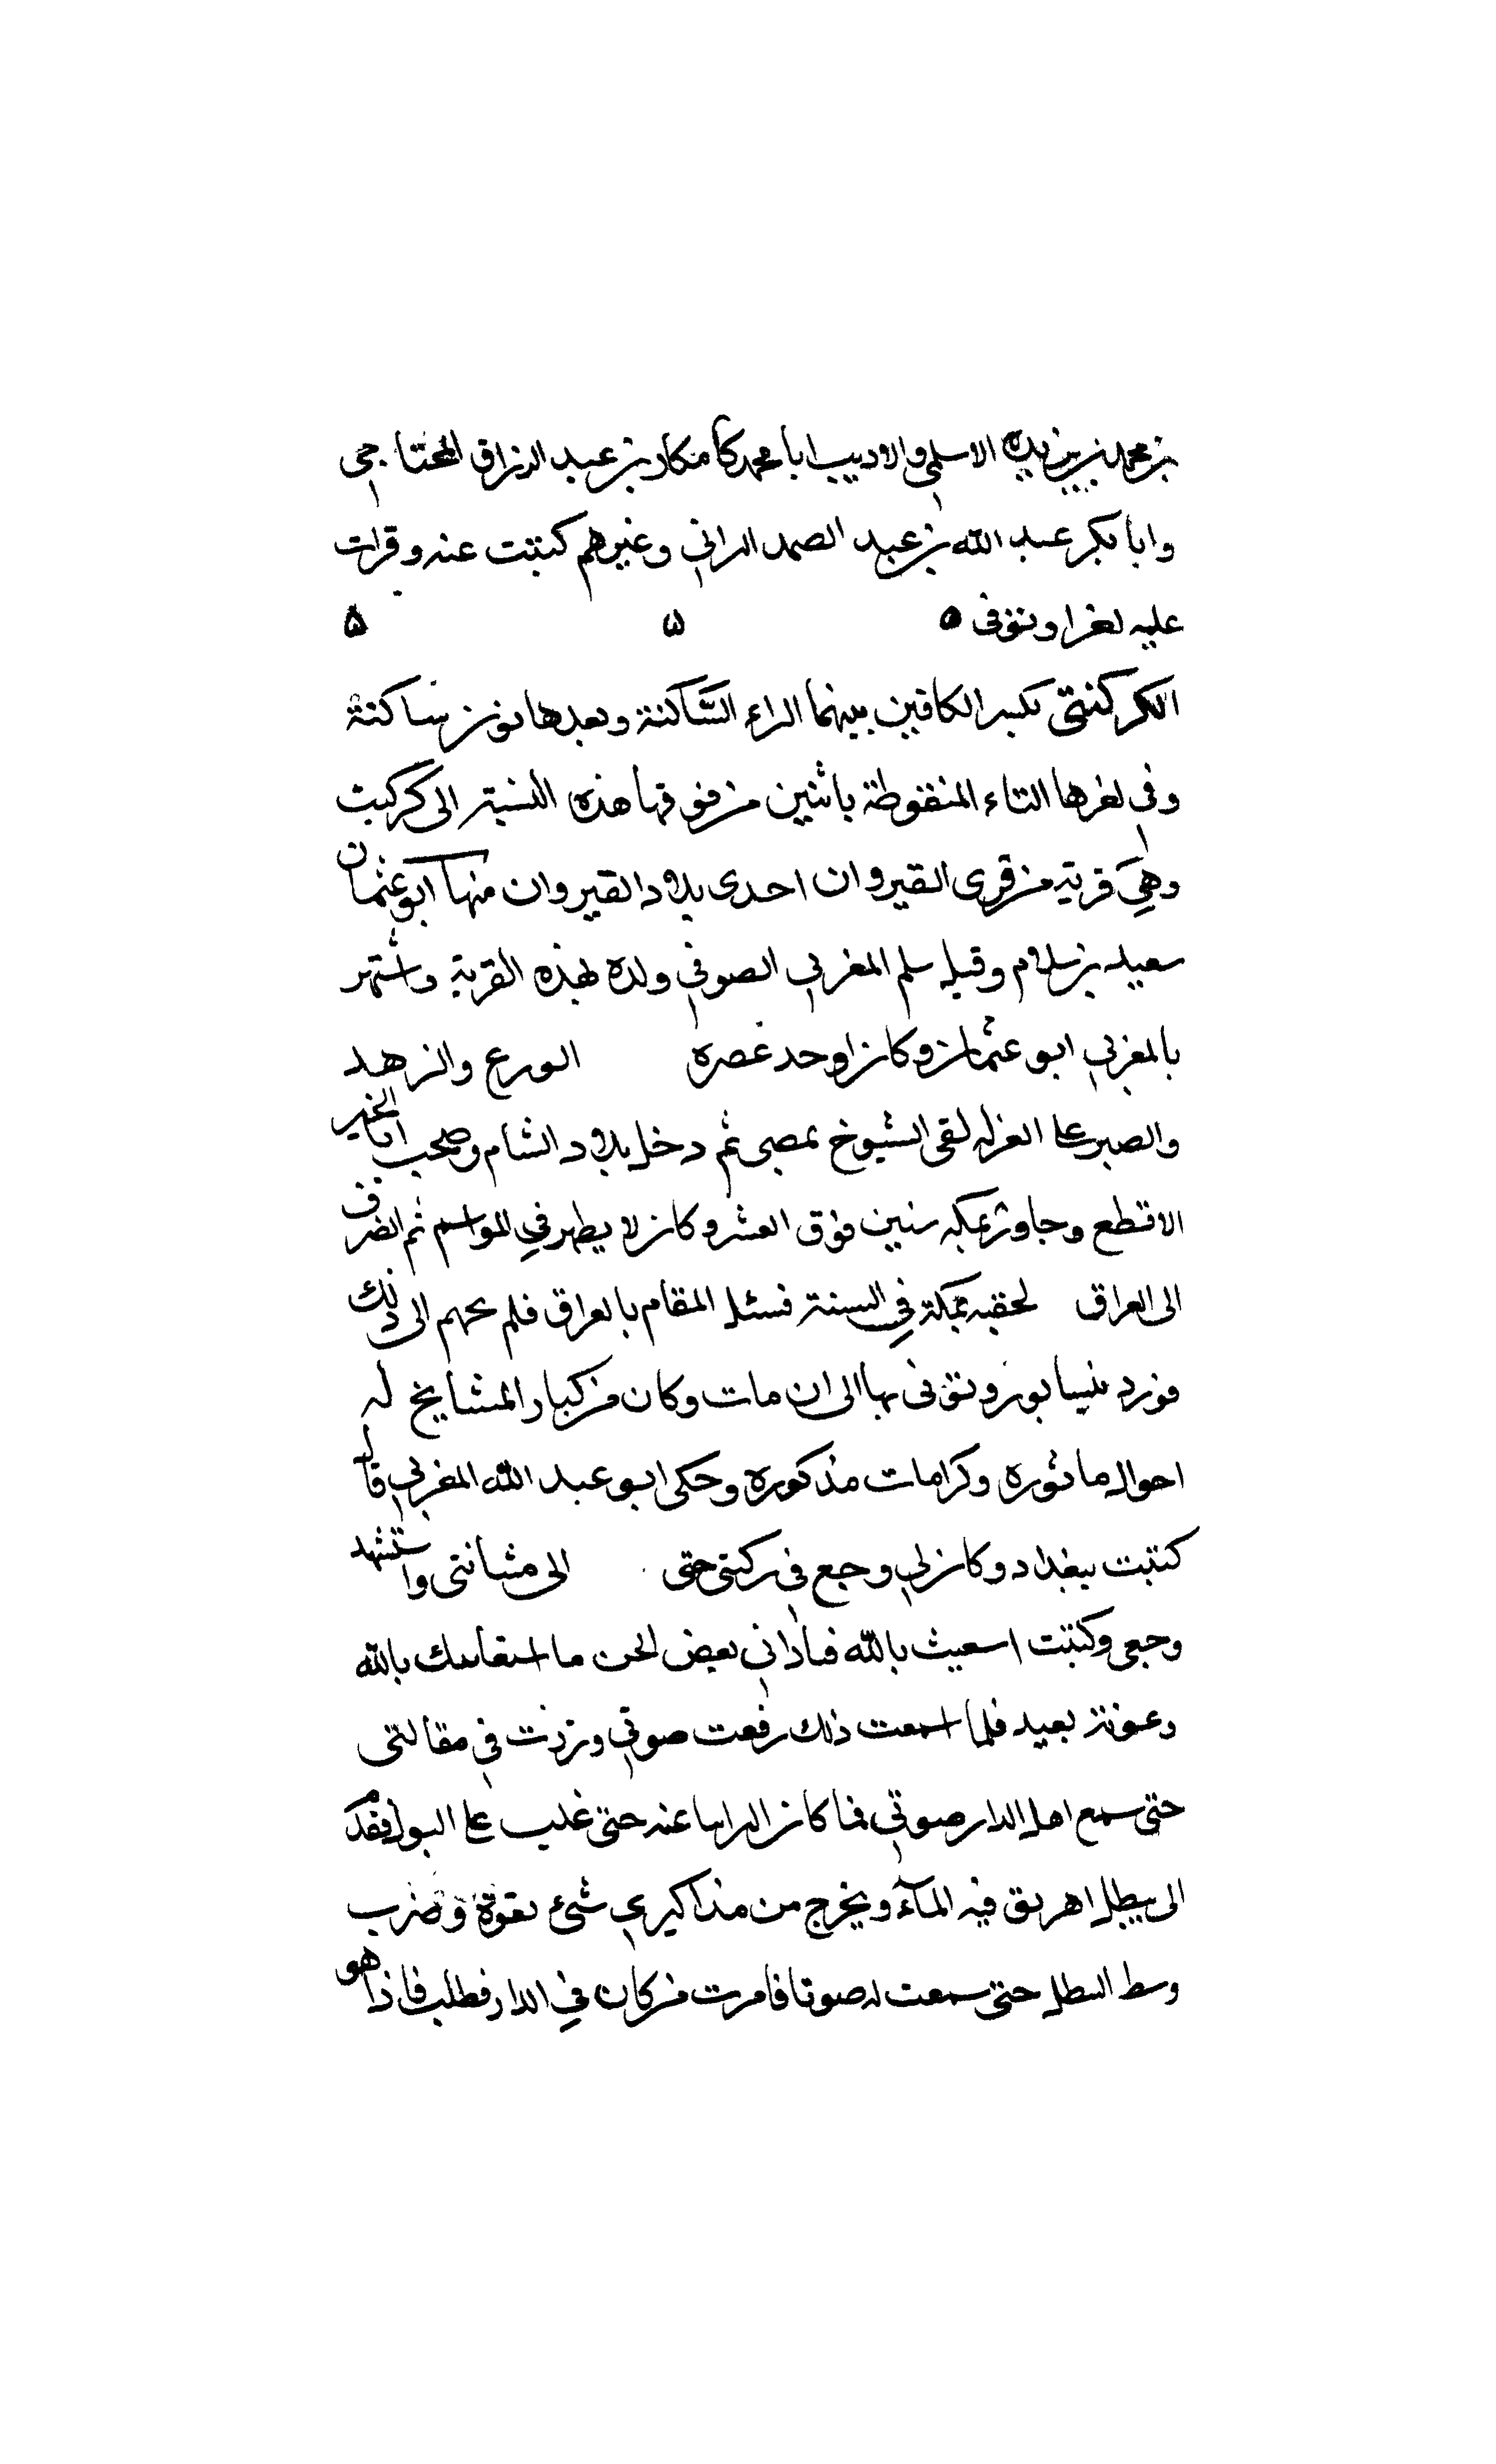 بن محمد بن بريده الاسلمي والاديب ابا محمد كامكار بن عبد الرزاق المحتاجي
وابا بكر عبد الله بن عبد الصمد الرابي وغيرهم كتبت عنه وقرات
عليه وتوفى ٥
الكركنتى بكسر الكافين بينهما الراء الساكنة وبعدها نون ساكنة
وفى اخرها التاء المنقوطة باثنين من فوقها هذه النسبة الى كركنت
وهي قرية من قرى القيروان احدى بلاد القيروان منها ابو عثمان
سعيد بن سلام وقيل سلم المغربي الصوفي ولده بهذه القرية واشتهر
بالمغربي ابو عثمان وكان اوحد عصره الورع والزهد
والصبر على العزلة لقى الشيوخ بمصر ثم دخل بلاد الشام وصحب ابا الخير
الاقطع وجاور بمكة سنين فوق العشر وكان لا يظهر في المواسم ثم انصرف
الى العراق لحقته بمكة في السنة فسئل المقام بالعراق فلم يحبهم الى ذلك
فورد نيسابور وتوفى بها الى ان مات وكان من كبار المشايخ له
احوال ماثوره وكرامات مذكوره وحكى ابو عبد الله المغربي قال
كنت ببغداد وكان لي وجع في ركبتى حتى الى مثانتى واشتد
وجعى وكنت استغيث بالله فناداني بعض الجن ما استغاثتك بالله
وغوثه بعيد فلما سمعت ذلك رفعت صوتي وزدت في مقالتى
حتى سمع اهل الدار صوتي فما كان الا ساعة حتى غلب على البول فقدم
الى سطل اهريق فيه المآء ويخرج من مذاكيري شئ بقوة وضرب
وسط السطل حتى سمعت له صوتا فامرت من كان في الدار فطلب فاذا هو